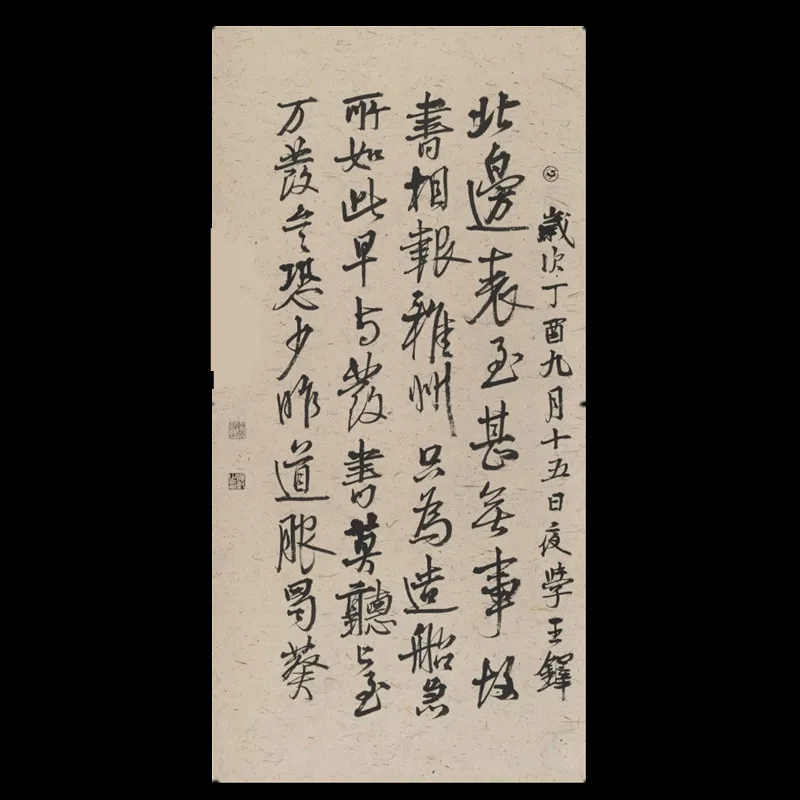 歲次丁酉九月十五日夜學王鐸
北邊表至甚無事故
書相報雅州只為造船急
所如此早与發書莫聽上至
万發言恐少昨道服蜀葵